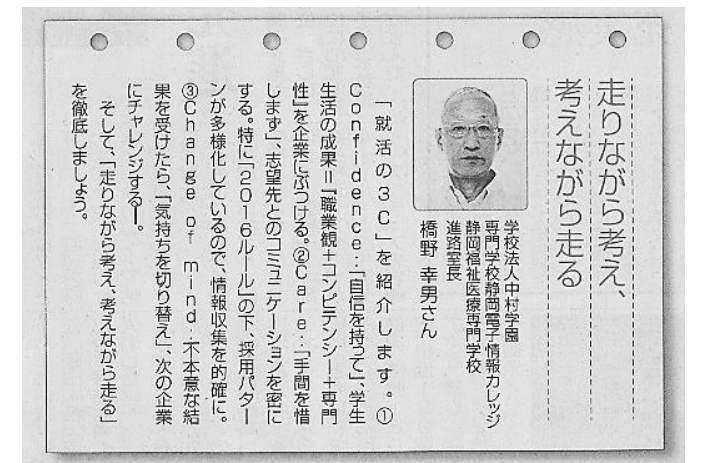 走りながら考え、
考えながら走る
学校法人中村学園
専門学校静岡電子情報カレッジ
静岡福祉医療専門学校
進路室長
橋野 幸男さん
「就活の3C」を紹介します。①
Confidence:「自信を持って」、学生
生活の成果=「職業観+コンピテンシー+専門
性」を企業にぶつける。②Care:「手間を惜
しまず」、志望先とのコミュニケーションを密に
する。特に「2016ルール」の下、採用パター
ンが多様化しているので、情報収集を的確に。
③Change of mind:不本意な結
果を受けたら、「気持ちを切り替え」、次の企業
にチャレンジする―。
そして、「走りながら考え、考えながら走る」
を徹底しましょう。